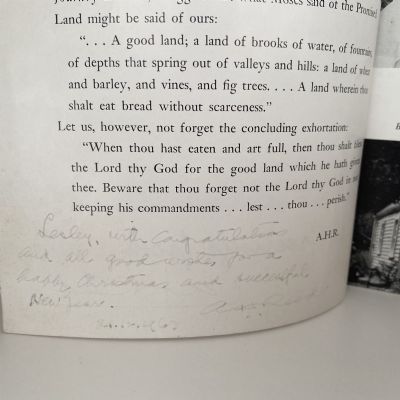 said of the Promised
Land might be said of ours:
". . . A good land; a land of brooks of water, of fountains,
of depths that spring out of valleys and hills: a land of wheat
and barley, and vines, and fig trees. . . . A land wherein thou
shalt eat bread without scarceness."
Let us, however, not forget the concluding exhortation:
"When thou hast eaten and art full, then thou shalt bless
the Lord thy God for the good land which he hath given
thee. Beware that thou forget not the Lord thy God in not
keeping his commandments . . . lest . . . thou . . . perish."
A.H.R.
Lesley, with Congratulations
and all good wishes for a
happy Christmas and successful
New Year.